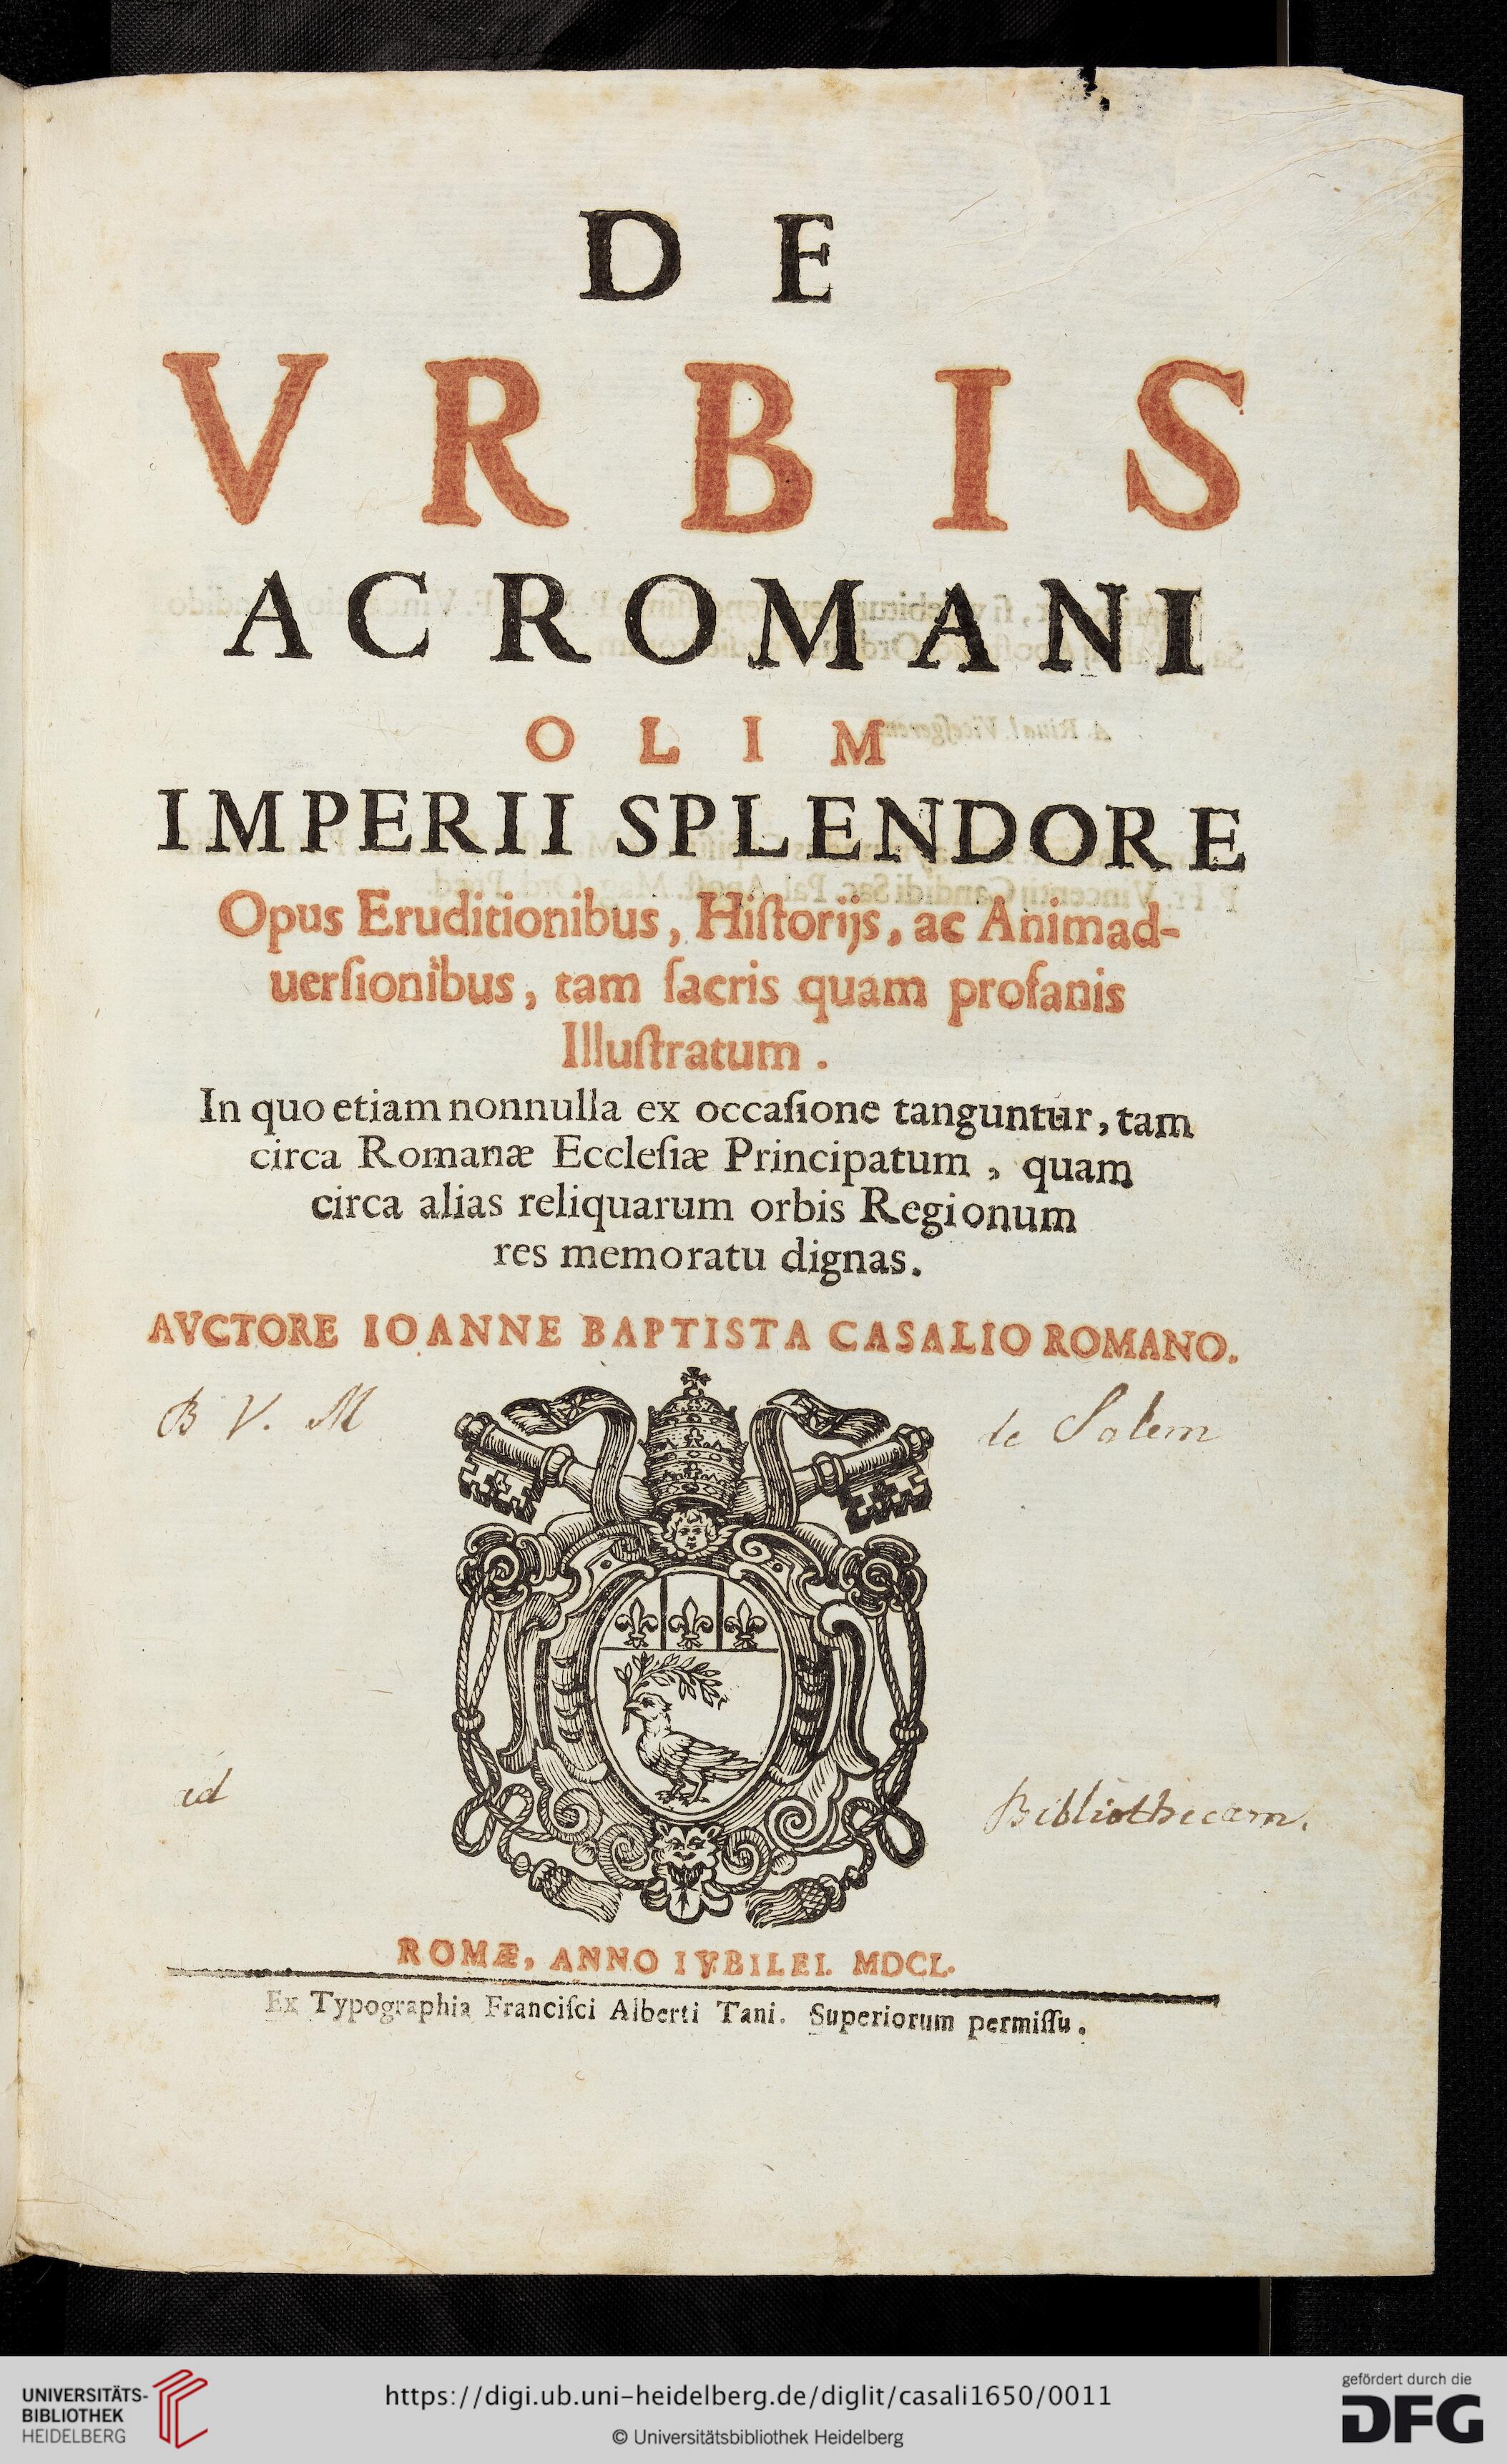 DE
VRBIS
AC ROMANI
OLIM
IMPERII SPLENDORE
Opus Eruditionibus, Hiſtorijs, ac Animad-
uerſionibus, tam ſacris quam profanis
Illuſtratum.
In quo etiam nonnulla ex occaſione tanguntur, tam
circa Romanæ Eccleſiæ Principatum, quam
circa alias reliquarum orbis Regionum
res memoratu dignas.
AVCTORE IOANNE BAPTISTA CASALIO ROMANO.
B V. M de Salem
ad Bibliothecam.
ROMÆ, ANNO IVBILEI. MDCL.
Ex Typographia Franciſci Alberti Tani. Superiorum permiſſu.
UNIVERSITÄTS-
BIBLIOTHEK
HEIDELBERG
https://digi.ub.uni-heidelberg.de/diglit/casali1650/0011
© Universitätsbibliothek Heidelberg
gefördert durch die
DFG